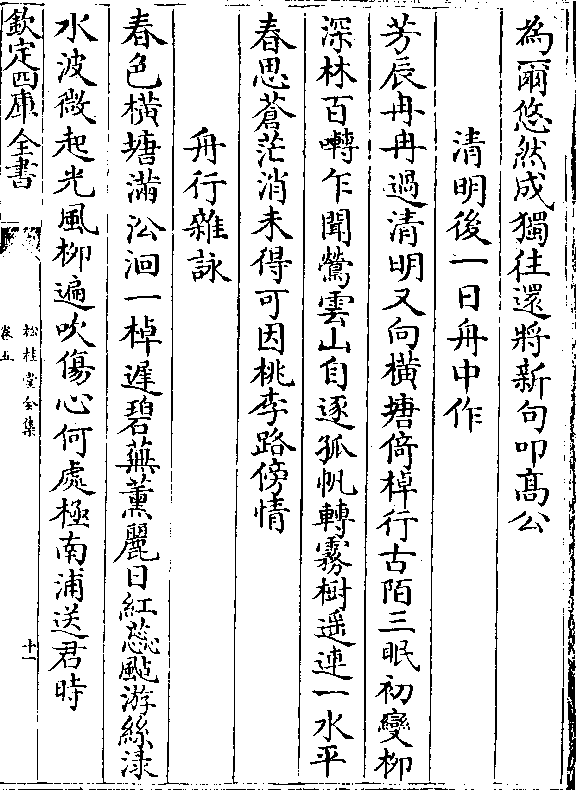 為爾悠然成獨往還將新句叩髙公
清明後一日舟中作
芳辰冉冉過清明又向橫塘倚棹行古陌三眠初變柳
深林百囀乍聞鶯雲山自逐孤帆轉霧樹遥連一水平
春思蒼茫消未得可因桃李路傍情
舟行雜詠
春色橫塘滿㳂洄一棹遲碧蕪薰麗日紅蕊颭游絲渌
水波微起光風柳遍吹傷心何處極南浦送君時
欽定四庫全書
松桂堂全集
卷五
十一